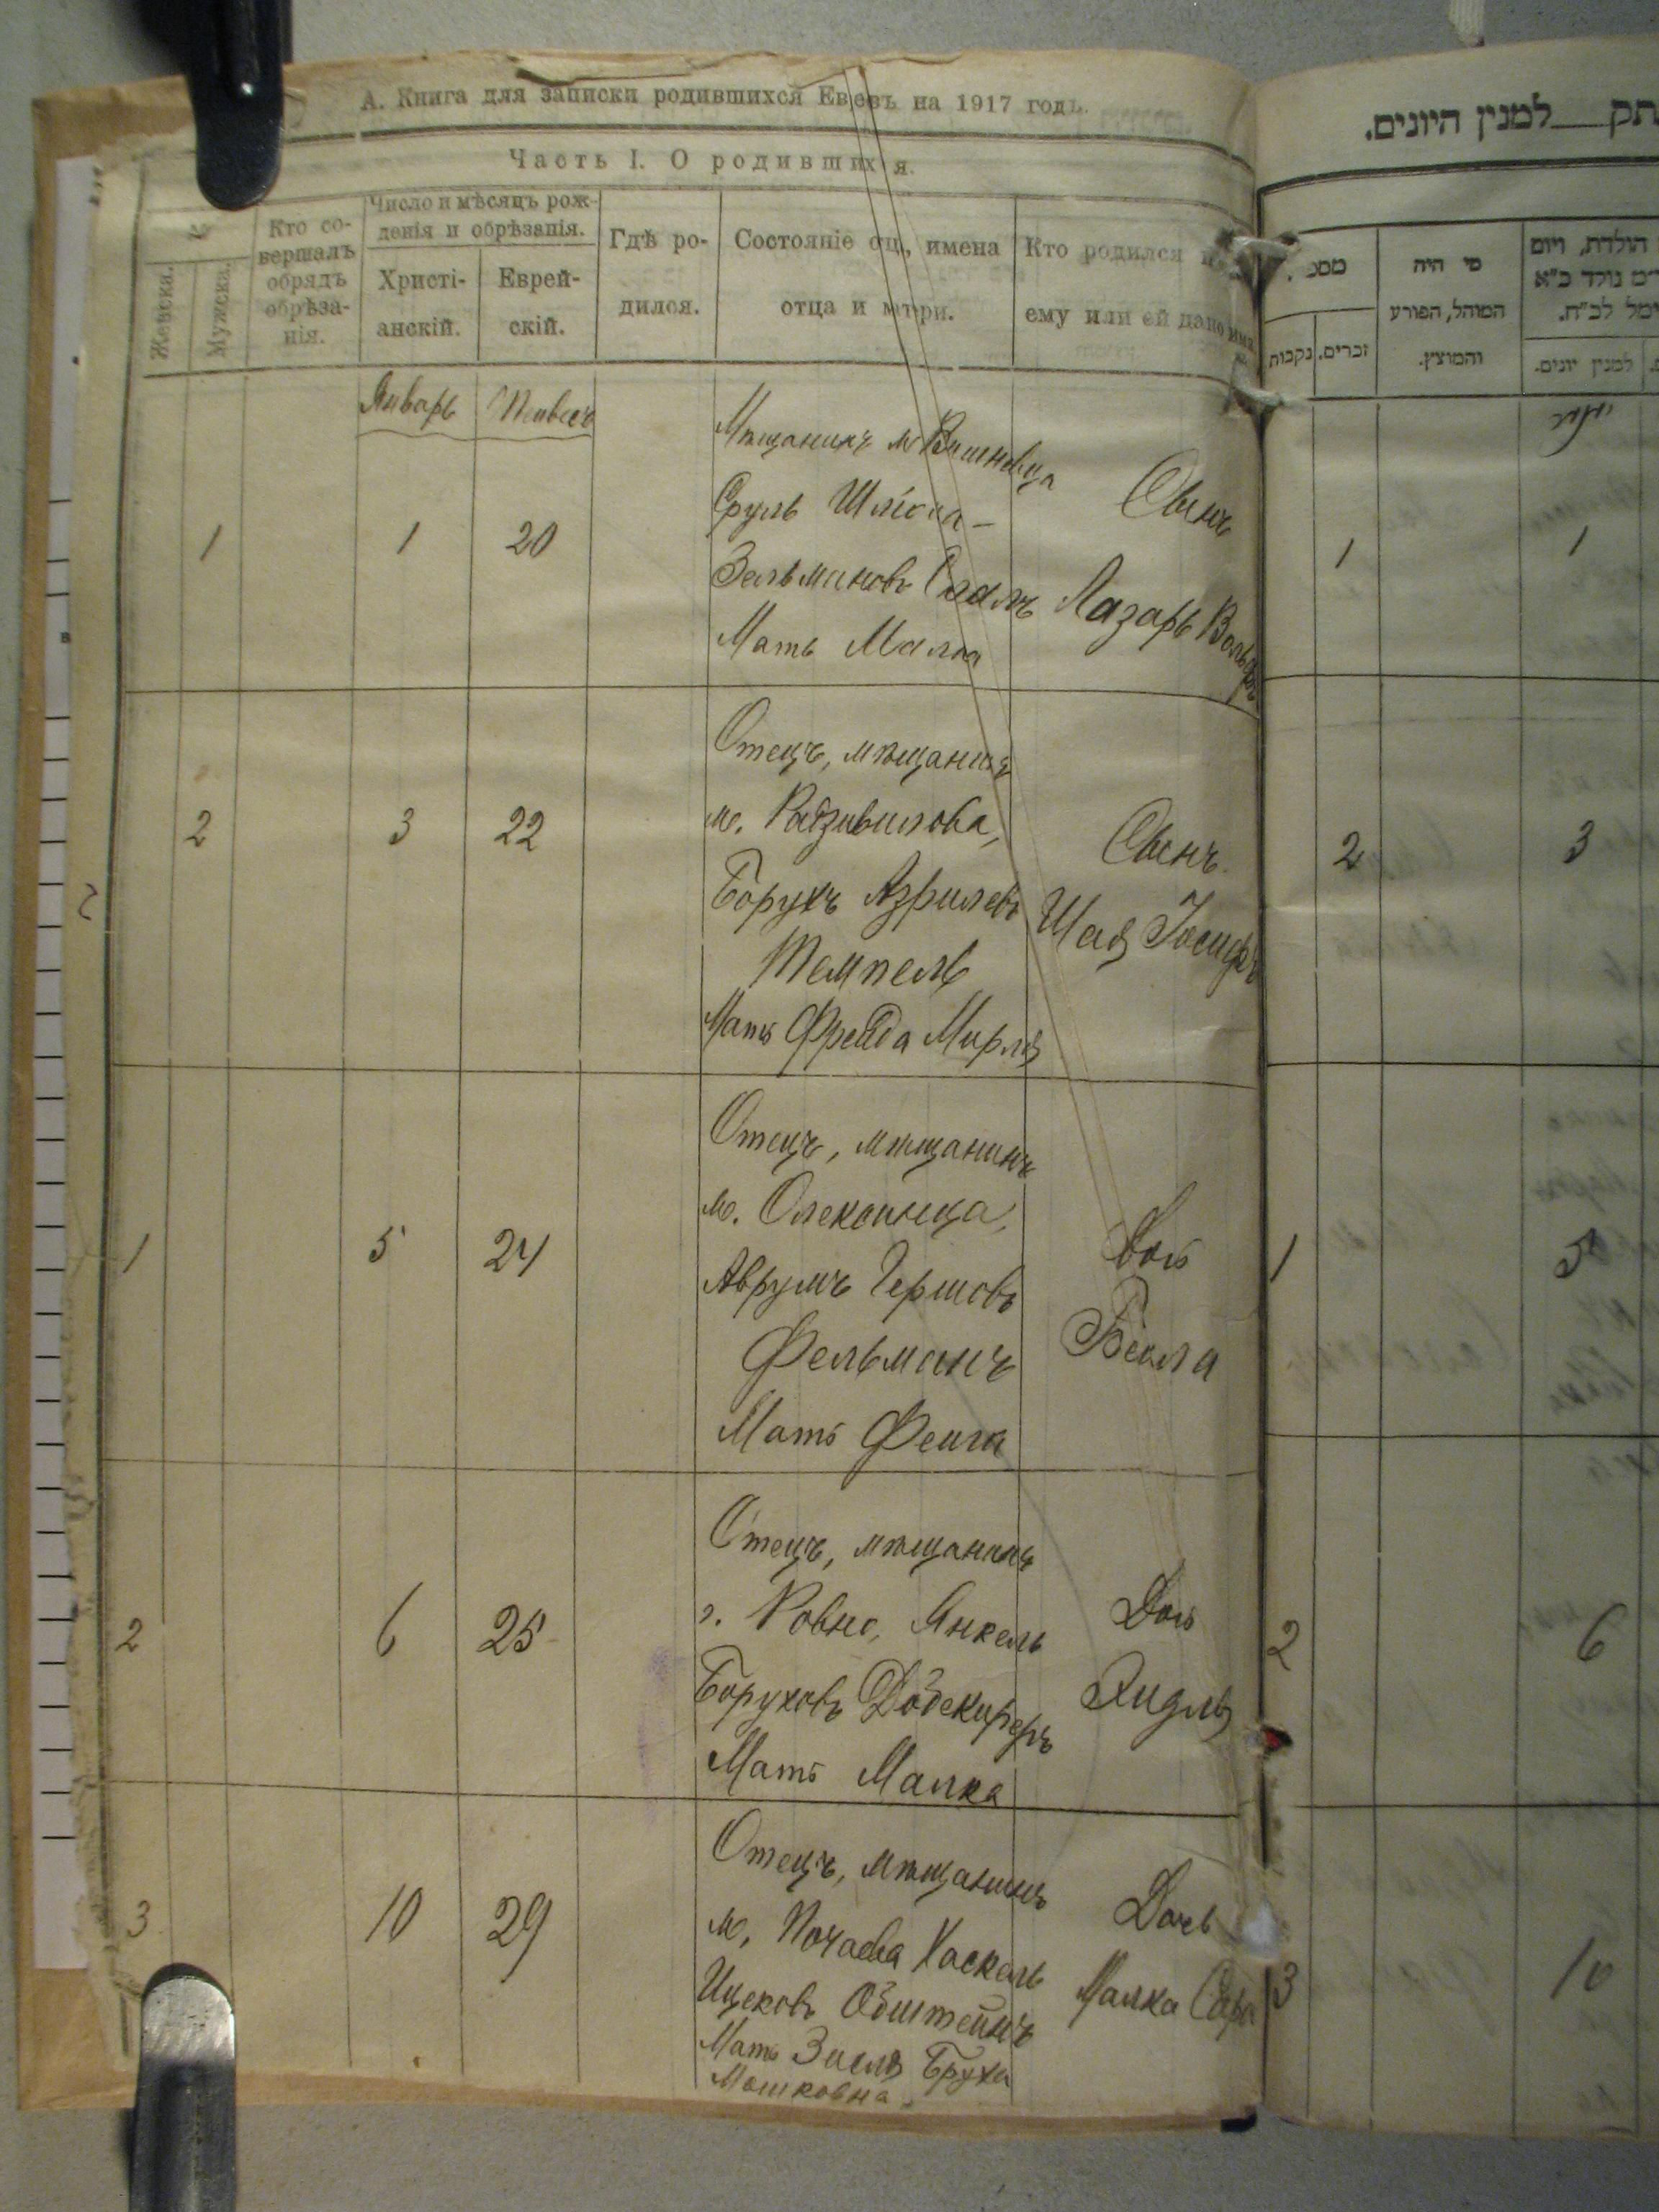 А. Книга для записки родившихся Евреевъ на 1917 годъ.
Часть I. О родившихся.
№
Женска.
Мужска.
Кто со-
вершалъ
обрядъ
обрѣза-
нія.
Число и мѣсяцъ рож-
денія и обрѣзанія.
Христі-
анскій.
Еврей-
скій.
Гдѣ ро-
дился.
Состояніе отц., имена
отца и матери.
Кто родился и
ему или ей дано имя
Январь
1
1
20
Мѣщанинъ м Вишневца
Сруль Шлiома-
Зельмановъ
Мать Малка
Сынъ
Лазарь Вольфъ
2
3
22
Отецъ, мѣщанинъ
м. Радзивилова,
Борухъ Азрилевъ
Темпель
Мать Фрейда Мирля
Сынъ
Шая Іосифъ
1
5
24
Отецъ, мѣщанинъ
м. Олексинца,
Аврумъ Гершовъ
Фельманъ
Мать Фейга
Дочь
Бейла
2
6
25
Отецъ, мѣщанинъ
г. Ровно, Янкель
Боруховъ
Мать Малка
Дочь
3
10
29
Отецъ, мѣщанинъ
м. Почаева Хаскель
Ицековъ Обштейнъ
Мать Зисля Бруха
Мошковна.
Дочь
Малка Сара
למנין היונים.
זכרים.
נקבות
מי היה
המוהל, הפורע
והמוצץ.
הולדת, ויום
נולד כ"א
ימל לב"ח.
למנין יונים.
1
1
2
3
1
5
2
6
3
10